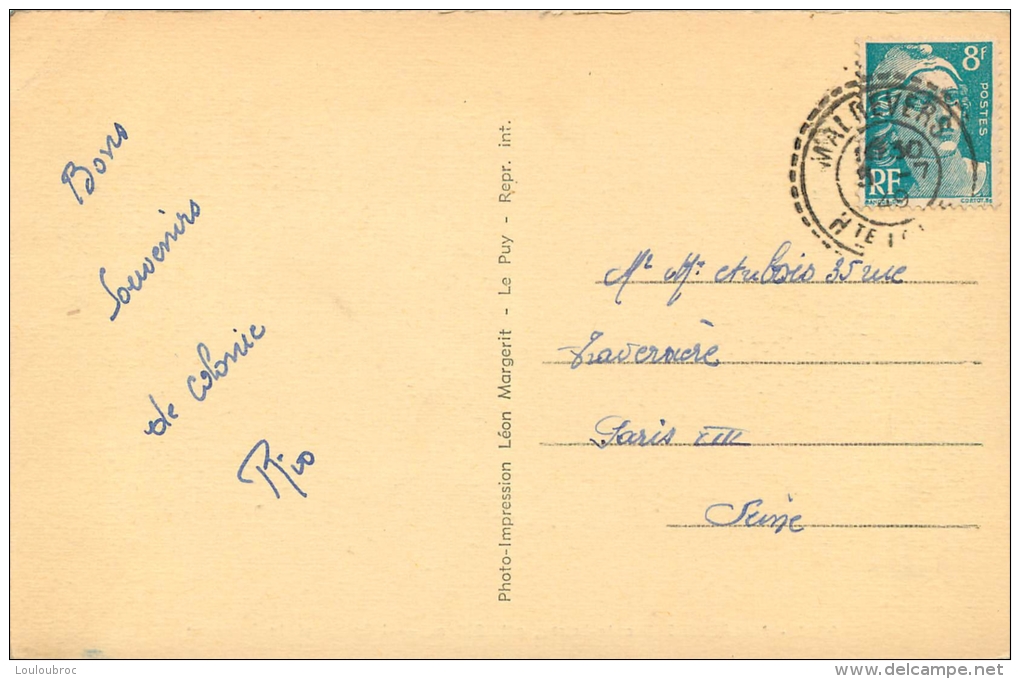 Bons
Souvenirs
de colonie
Rio
Photo-Impression Léon Margerit - Le Puy - Repr. int.
8F
POSTES
RF
MALREVERS
HTE
49
Mr Me Aubois 35 rue
Tavernière
Paris XIII
Seine
Louloubroc
www.delcampe.net